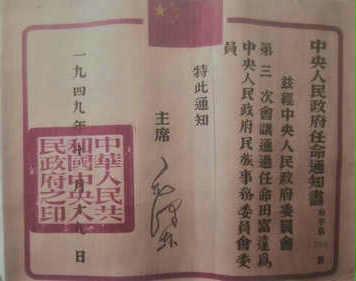 中央人民政府任命通知書
茲經中央人民政府委員會
第三次會議通過任命田富達為
中央人民政府民族事務委員會委
員
特此通知
主席 毛澤東
一九四九年十月十九日
中華人民共
和國中央人
民政府之印